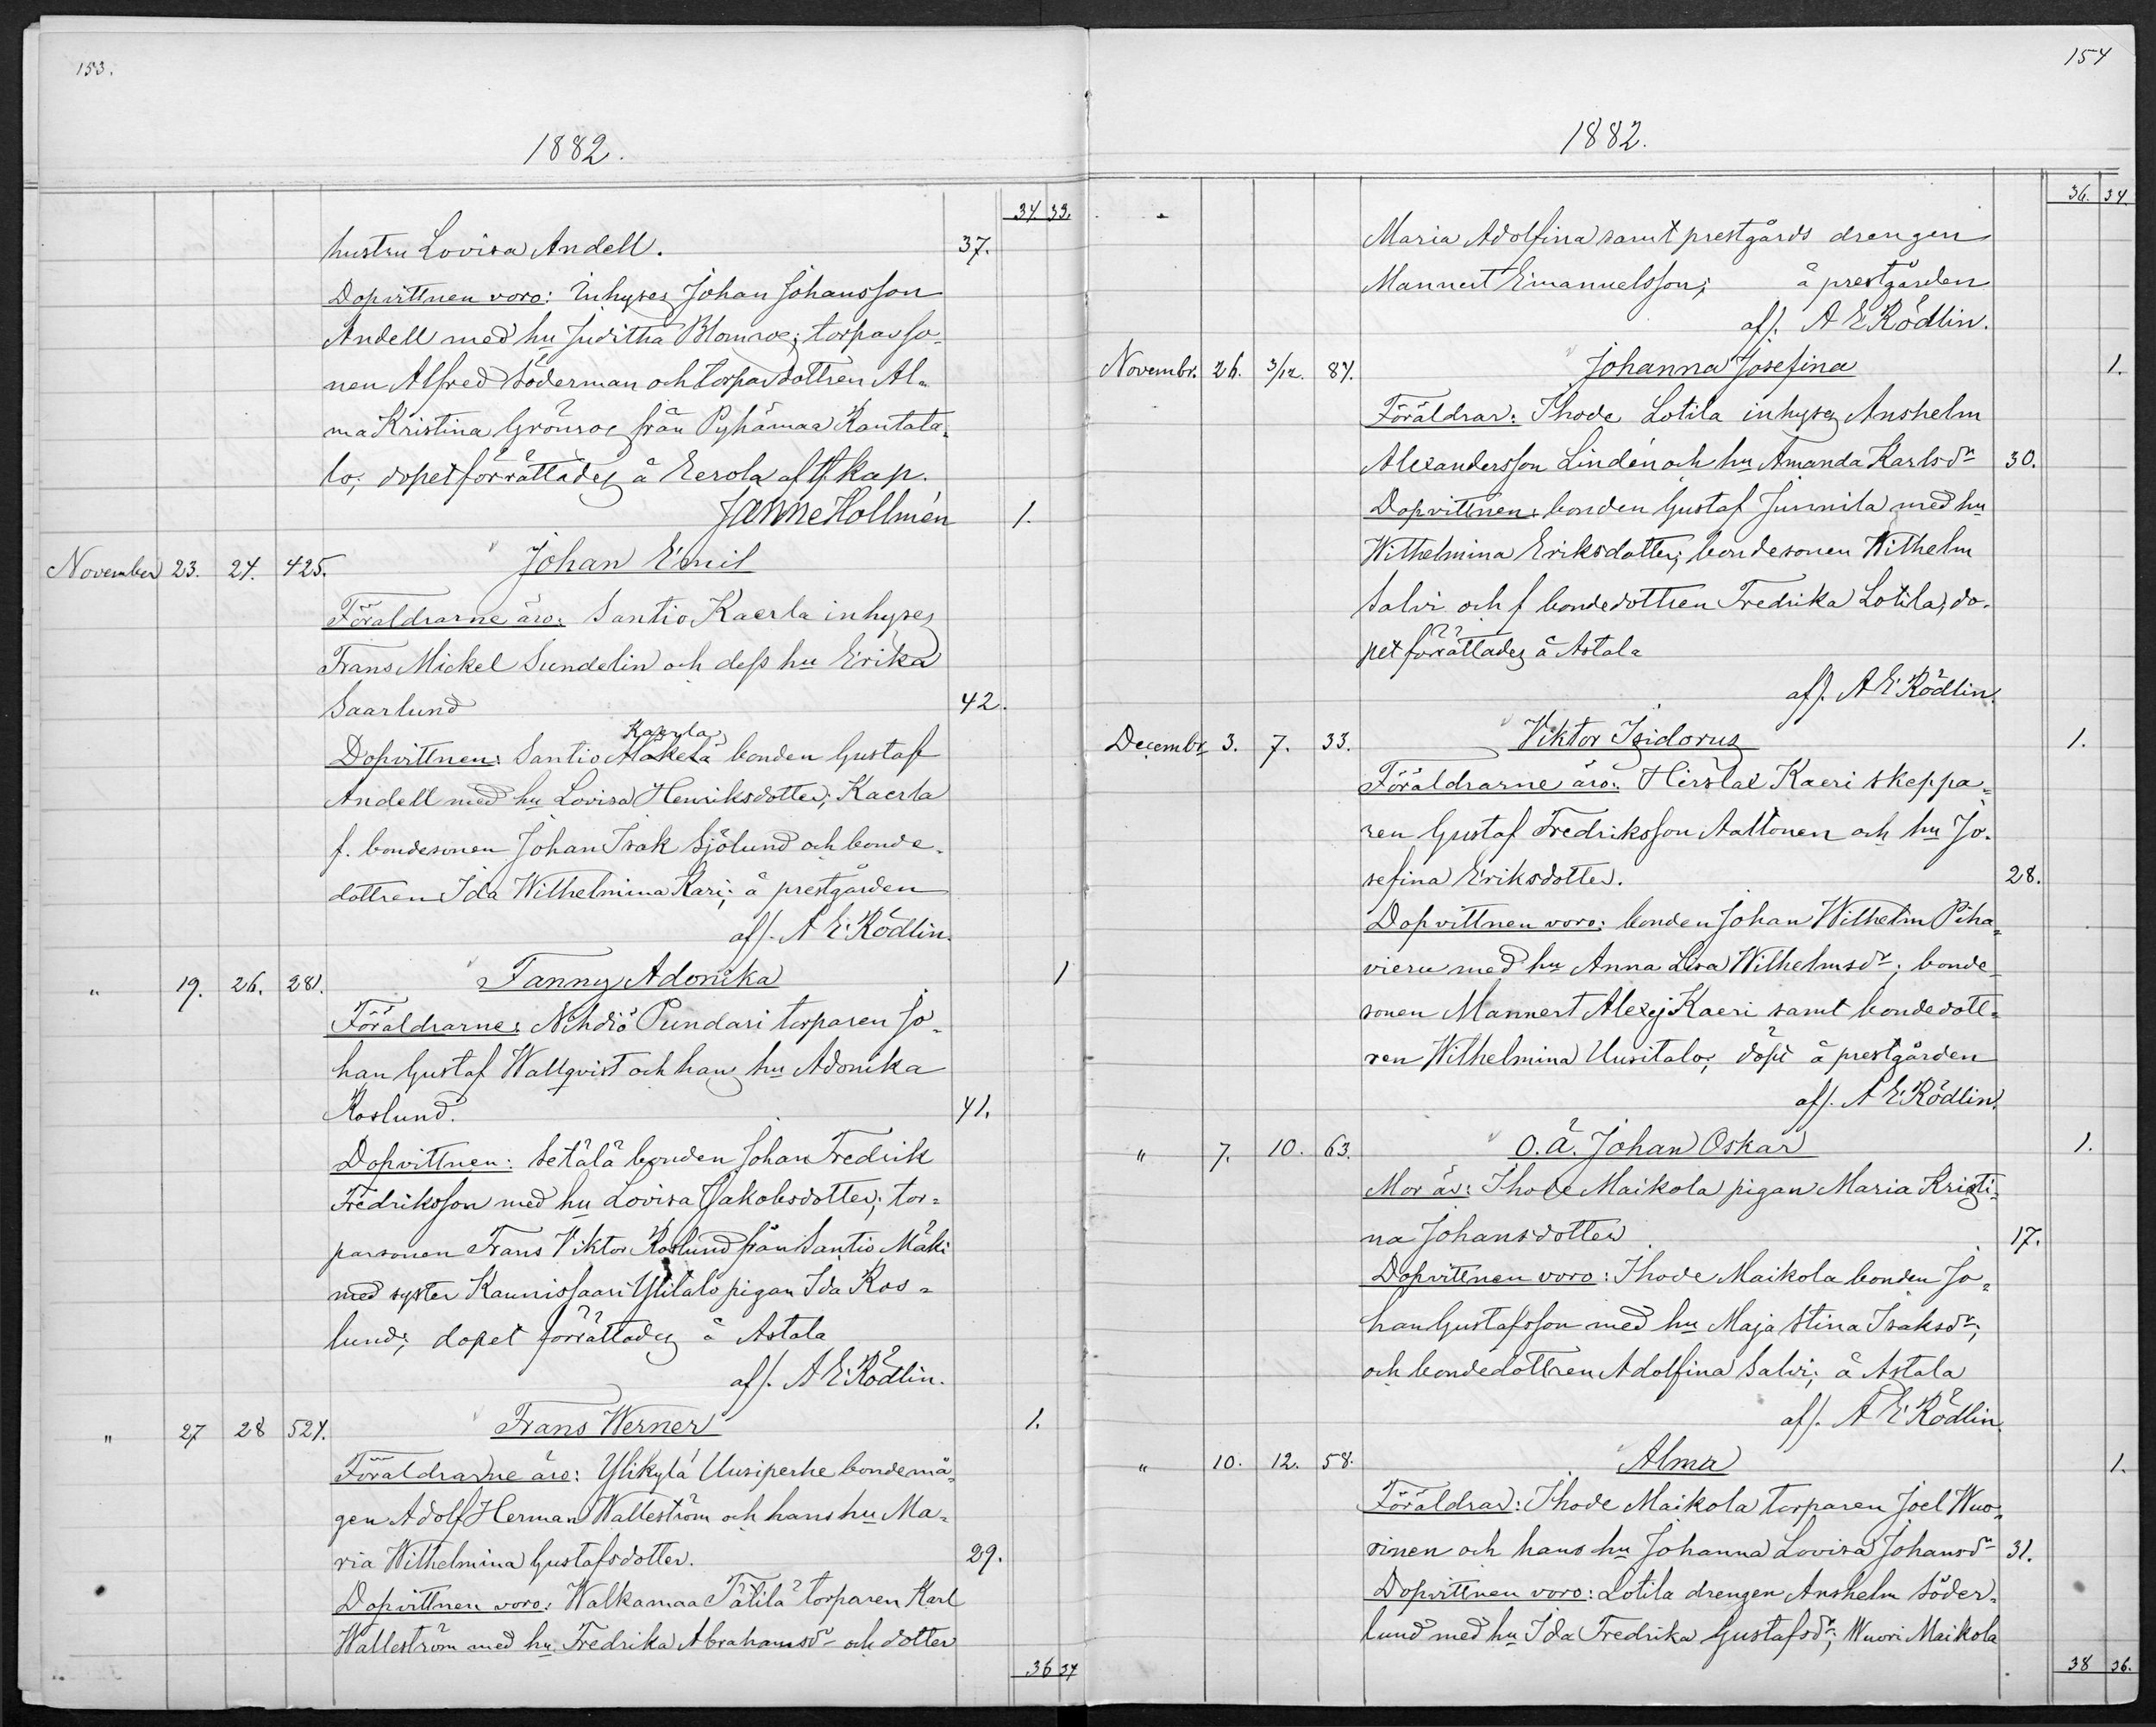 153.
1882.
34 33.
hustru Lovisa Andell. 37.
Dopvittnen voro: Inhyses Johan Johansson
Andell med hu Juditha Blomroos; torpareso-
nen Alfred Söderman och torparedottren Al-
ma Kristina Grönroos från Pyhämaa Kantata-
lo; dopet förrättades å Eerola af tf kap.
Janne Hollmén 1.
November 23. 24. 425. Johan Emil
Föräldrarne äro: Santio Kaerla inhyses
Frans Mickel Sundelin och dess hu Erika
Saarlund 42.
Kaerla
Dopvittnen: Santio Mäkelä bonden Gustaf
Andell med hu Lovisa Henriksdotter; Kaerla
f. bondesonen Johan Isak Sjölund och bonde-
dottren Ida Wilhelmina Kari; å prestgården
aff. A E Rödlin.
" 19. 26. 281. Fanny Adonika 1
Föräldrarne: Nihdiö Pundari torparen Jo-
han Gustaf Wallqvist och hans hu Adonika
Roslund. 41.
Dopvittnen: Setälä bonden Johan Fredrik
Fredriksson med hu Lovisa Jakobsdotter; tor-
paresonen Frans Viktor Roslund från Santio Mäki
med syster Kaunissaari Ylitalo pigan Ida Ros-
lund; dopet förrättades å Astala
aff. A E Rödlin.
" 27 28 524. Frans Werner 1.
Föräldrarne äro: Ylikylä Uusiperhe bondemå-
gen Adolf Herman Walleström och hans hu Ma-
ria Wilhelmina Gustafsdotter. 29.
Dopvittnen voro: Walkamaa Tätilä torparen Karl
Walleström med hu Fredrika Abrahamsdr och dotter
36 34
154
1882.
36. 34.
Maria Adolfina samt prestgårds drengen
Mannert Emanuelsson; å prestgården
aff. A E Rödlin.
Novembr. 26. 3/12. 84. Johanna Josefina 1.
Föräldrar: Ihode Lotila inhyses Anshelm
Alexandersson Lindén och hu Amanda Karlsdr 30.
Dopvittnen: bonden Gustaf Junnila med hu
Wilhelmina Eriksdotter; bondesonen Wilhelm
Salvi och f bondedottren Fredrika Lotila; do-
pet förrättades å Astala
aff. A E Rödlin.
Decembr 3. 7. 33. Viktor Isidorus 1.
Föräldrarne äro: Hirslax Kaeri skeppa-
ren Gustaf Fredriksson Aaltonen och hu Jo-
sefina Eriksdotter. 28.
Dopvittnen voro: bonden Johan Wilhelm Piha-
vieru med hu Anna Lisa Wilhelmsdr; bonde-
sonen Mannert Alexej Kaeri samt bondedott-
ren Wilhelmina Uusitalo; döpt å prestgården
aff. A E Rödlin.
" 7. 10. 63. O.Ä. Johan Oskar 1.
Mor är: Ihode Maikola pigan Maria Kristi-
na Johansdotter 17.
Dopvittnen voro: Ihode Maikola bonden Jo-
han Gustafsson med hu Maja Stina Isaksdr;
och bondedottren Adolfina Salvi; å Astala
aff. A E Rödlin.
" 10. 12. 58. Alma 1.
Föräldrar: Ihode Maikola torparen Joel Wuo-
rinen och hans hu Johanna Lovisa Johansdr 31.
Dopvittnen voro: Lotila drengen Anshelm Söder-
lund med hu Ida Fredrika Gustafsdr; Wuori Maikola
38 36.